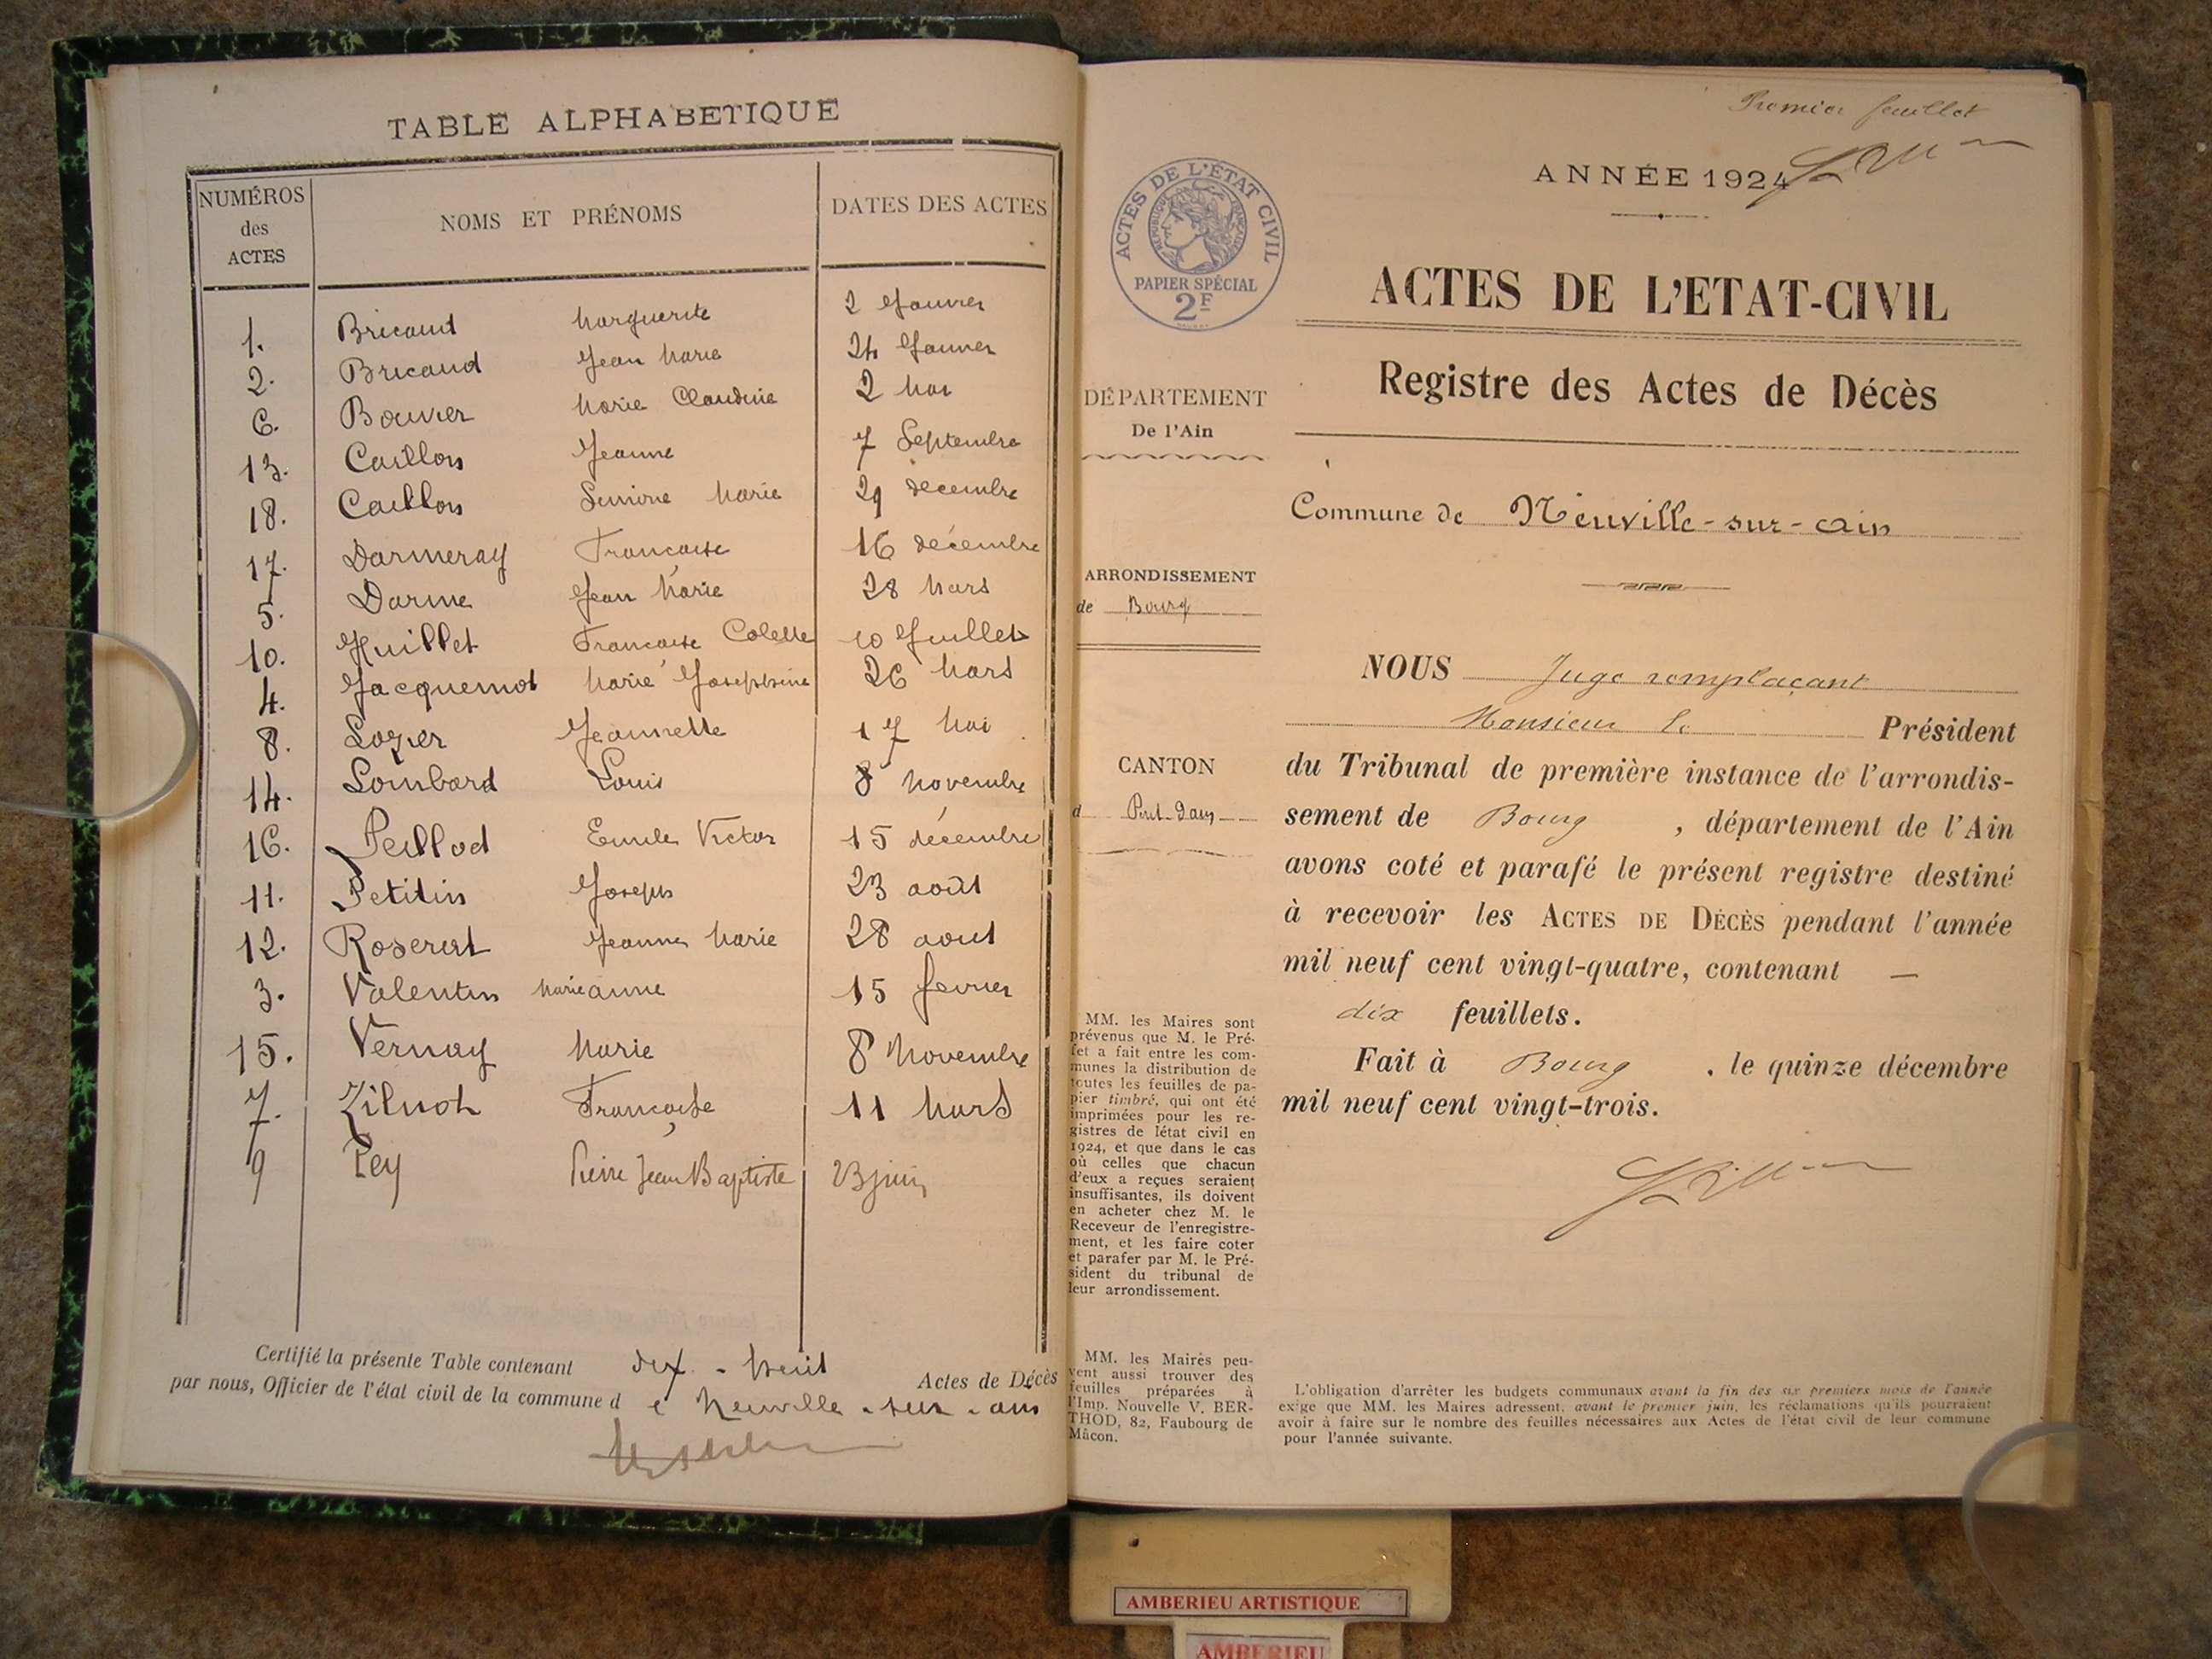 TABLE ALPHABETIQUE
NUMÉROS des ACTES
NOMS ET PRÉNOMS
DATES DES ACTES
1. Bricaud Marguerite 2 Janvier
2. Bricaud Jean Marie 24 Janvier
6. Bouvier Marie Claudine 2 Mai
13. Caillon Jeanne 7 Septembre
18. Caillon Simone Marie 29 décembre
17. Darmeray Françoise 16 décembre
5. Darme Jean Marie 28 Mars
10. Huillet Françoise Colette 10 Juillet
4. Jacquemot Marie Josephine 26 Mars
8. Lozier Jeannette 17 Mai
14. Lombard Louis 8 Novembre
16. Peillod Emile Victor 15 décembre
11. Petitin Joseph 23 août
12. Roserat Jeanne Marie 28 aout
3. Valentin Marie anne 15 fevrier
15. Vernay Marie 8 Novembre
7. Françoise 11 Mars
9 Pey Pierre Jean Baptiste 23 juin
Certifié la présente Table contenant dix-huit Actes de Décès
par nous, Officier de l'état civil de la commune d e Neuville-sur-ain
Premier feuillet
ANNÉE 1924
ACTES DE L'ÉTAT CIVIL
RÉPUBLIQUE FRANÇAISE
PAPIER SPÉCIAL
2F
ACTES DE L'ETAT-CIVIL
Registre des Actes de Décès
DÉPARTEMENT
De l'Ain
Commune de Neuville-sur-ain
ARRONDISSEMENT
de Bourg
CANTON
d Pont-d'ain
NOUS Juge remplaçant
Monsieur le Président
du Tribunal de première instance de l'arrondis-
sement de Bourg , département de l'Ain
avons coté et parafé le présent registre destiné
à recevoir les ACTES DE DÉCÈS pendant l'année
mil neuf cent vingt-quatre, contenant —
dix feuillets.
Fait à Bourg , le quinze décembre
mil neuf cent vingt-trois.
MM. les Maires sont
prévenus que M. le Pré-
fet a fait entre les com-
munes la distribution de
toutes les feuilles de pa-
pier timbré, qui ont été
imprimées pour les re-
gistres de létat civil en
1924, et que dans le cas
où celles que chacun
d'eux a reçues seraient
insuffisantes, ils doivent
en acheter chez M. le
Receveur de l'enregistre-
ment, et les faire coter
et parafer par M. le Pré-
sident du tribunal de
leur arrondissement.
MM. les Maires peu-
vent aussi trouver des
feuilles préparées à
l'Imp. Nouvelle V. BER-
THOD, 82, Faubourg de
Mâcon.
L'obligation d'arrêter les budgets communaux avant la fin des six premiers mois de l'année
exige que MM. les Maires adressent, avant le premier juin, les réclamations qu'ils pourraient
avoir à faire sur le nombre des feuilles nécessaires aux Actes de l'état civil de leur commune
pour l'année suivante.
AMBERIEU ARTISTIQUE
AMBERIEU